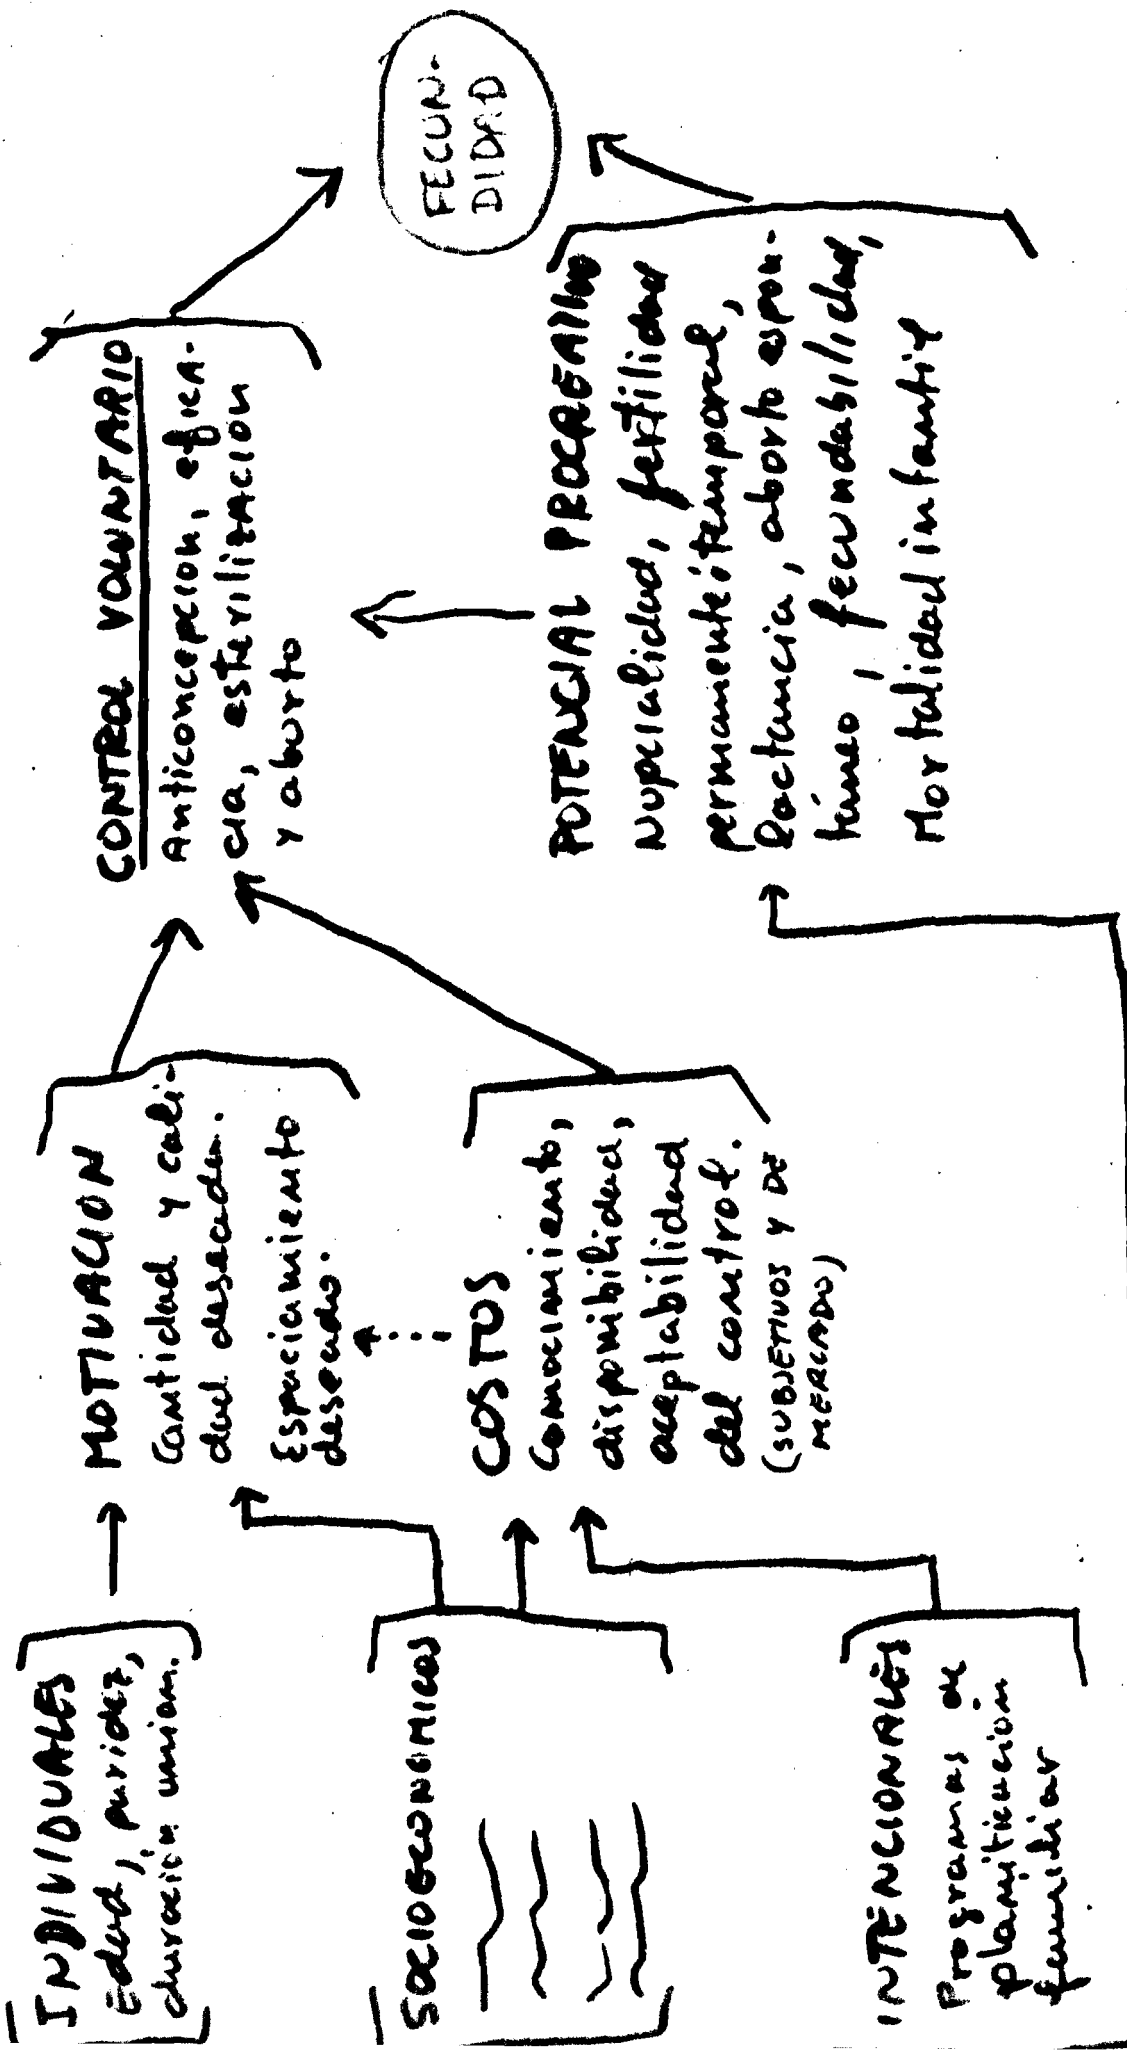 INDIVIDUALES
Edad, paridez,
duración union.
SOCIOECONOMICOS
INTENCIONALES
Programas de
planificacion
familiar
MOTIVACION
Cantidad y cali-
dad deseada.
Espaciamiento
deseado.
COSTOS
Conocimiento,
disponibilidad,
aceptabilidad
del control.
(SUBJETIVOS Y DE
MERCADO)
CONTROL VOLUNTARIO
Anticoncepcion, efica-
cia, esterilizacion
y aborto
POTENCIAL PROCREATIVO
Nupcialidad, fertilidad
permanente ó temporal,
Lactancia, aborto espon-
táneo, fecundabilidad,
Mortalidad infantil
FECUN-
DIDAD